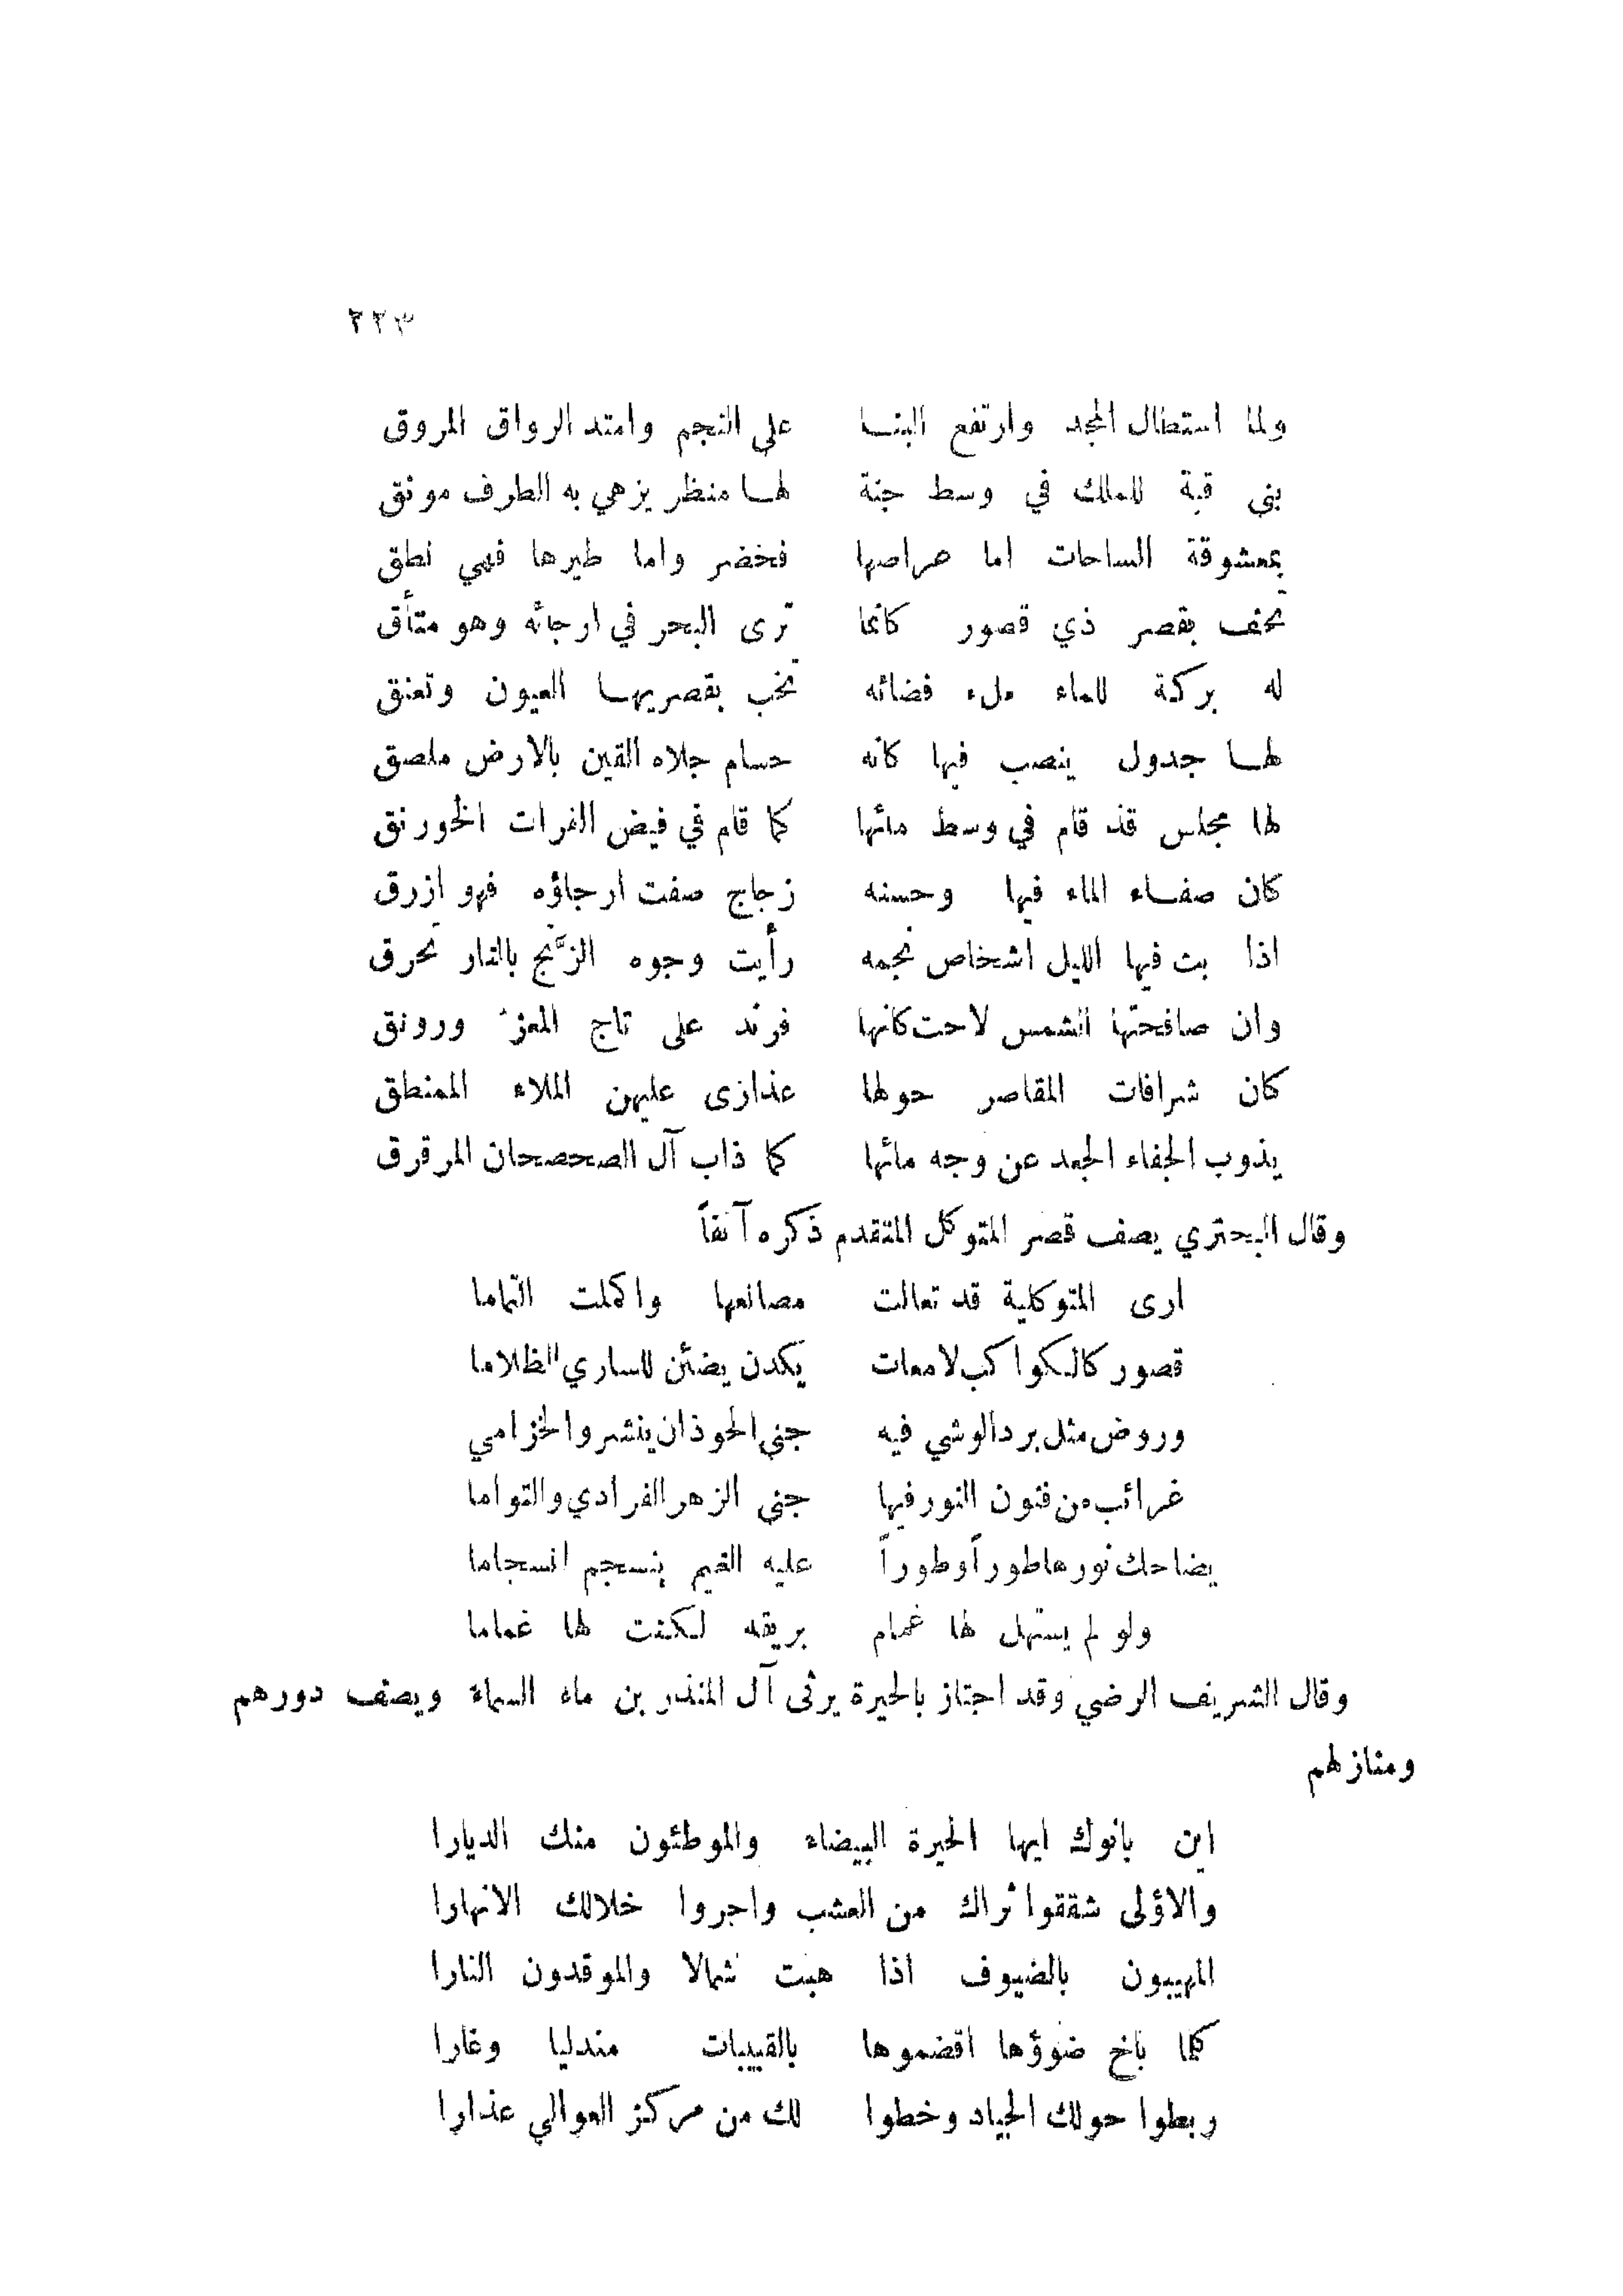 ٢٢٣
ولما استطال المجد وارتفع البنا على النجم وامتد الرواق المروق
بني قبة للملك في وسط جنة لها منظر يزهي به الطرف مونق
بمعشوقة الساحات اما عراصها فخضر واما طيرها فهي نطق
تحف بقصر ذي قصور كانما ترى البحر في ارجائه وهو متأق
له بركة للماء ملء فضائه تخب بقصريها العيون وتعنق
لها جدول ينصب فيها كانه حسام جلاه القين بالارض ملصق
لها مجلس قد قام في وسط مائها كما قام في فيض الفرات الخورنق
كان صفاء الماء فيها وحسنه زجاج صفت ارجاؤه فهو ازرق
اذا بث فيها الليل اشخاص نجمه رأيت وجوه الزَّنج بالنار تحرق
وان صافحتها الشمس لاحت كانها فرند على تاج المعز ورونق
كان شرافات المقاصر حولها عذارى عليهن الملاء الممنطق
يذوب الجفاء الجعد عن وجه مائها كما ذاب آل الصحصحان المرقرق
وقال البحتري يصف قصر المتوكل المتقدم ذكره آنفاً
ارى المتوكلية قد تعالت مصانعها واكملت التماما
قصور كالكواكب لامعات يكدن يضئن للساري الظلاما
وروض مثل برد الوشي فيه جنى الحوذان ينشر والخزامي
غرائب من فنون النور فيها جنى الزهر الفرادي والتواما
يضاحك نورها طوراً وطوراً عليه الغيم ينسجم انسجاما
ولو لم يستهل لها غمام بريقه لكنت لها غماما
وقال الشريف الرضي وقد اجتاز بالحيرة يرثى آل المنذر بن ماء السماء ويصف دورهم
ومنازلهم
اين بانوك ايها الحيرة البيضاء والموطئون منك الديارا
والاؤلى شققوا ثراك من العشب واجروا خلالك الانهارا
المهيبون بالضيوف اذا هبت شمالا والموقدون النارا
كلما باخ ضوؤها اقضموها بالقبيبات مندليا وغارا
ربطوا حولك الجياد وخطوا لك من مركز العوالي عذارا